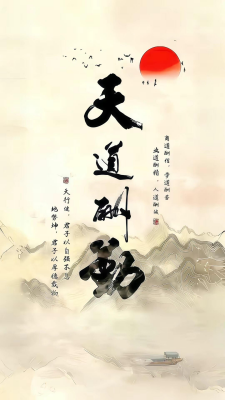 天道酬勤
商道酬信，学道酬苦
业道酬精，人道酬诚
天行健，君子以自强不息
地势坤，君子以厚德载物